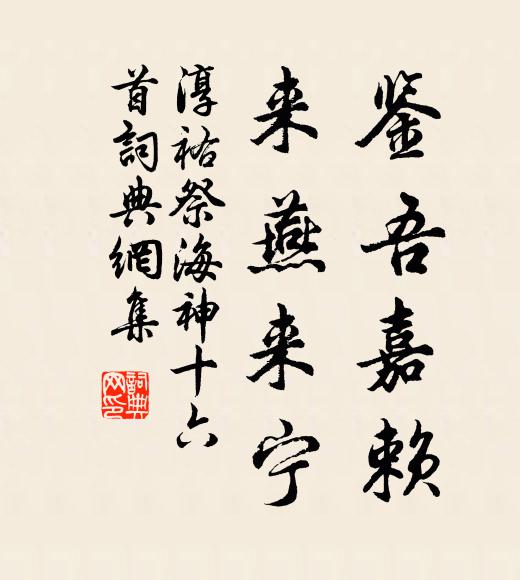 鉴吾嘉赖
来燕来宁
淳祐祭海神十六
首詞典網集
詞典
网印